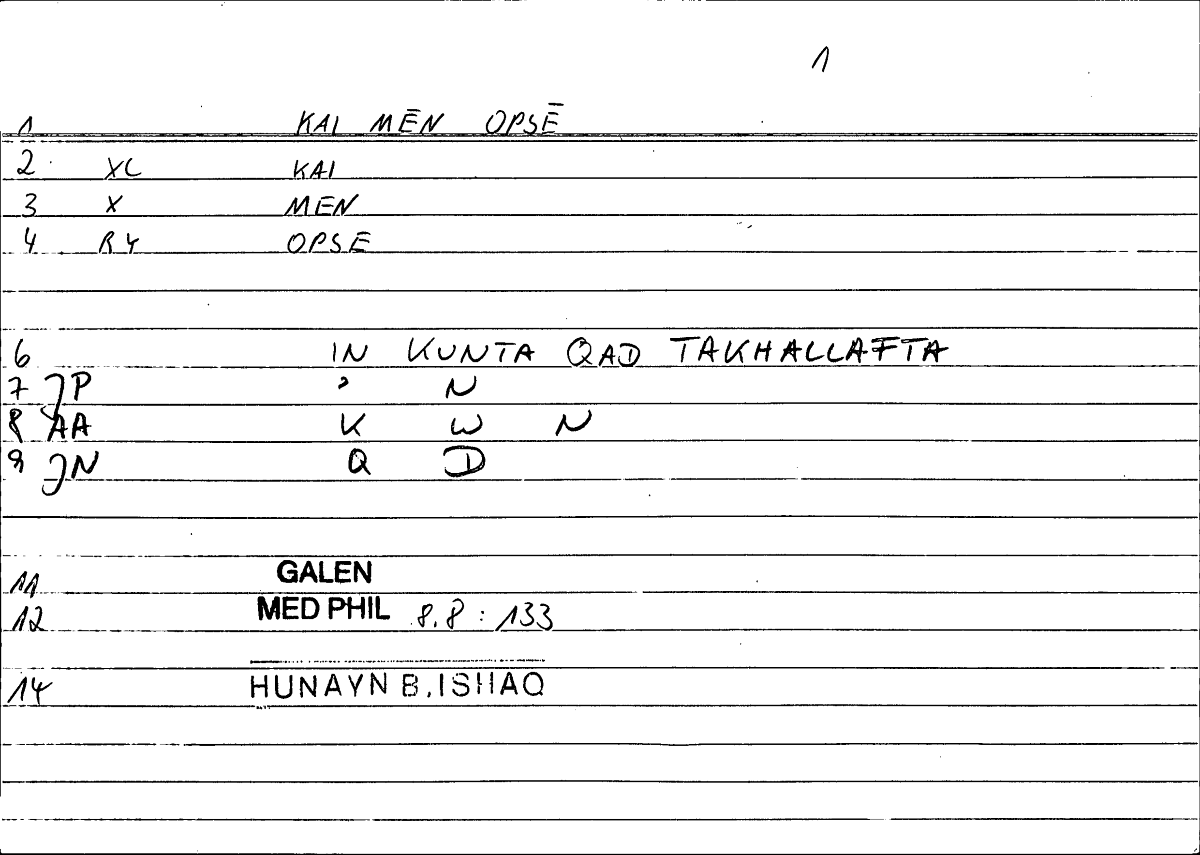 1
1 KAI MĒN OPSĒ
2 XL KAI
3 X MEN
4 R4 OPSE
6 IN KUNTA QAD TAKHALLAFTA
7 JP ʾ N
8 AA K W N
9 JN Q D
11 GALEN
12 MED PHIL 8.8 : 133
14 HUNAYN B.ISHAQ